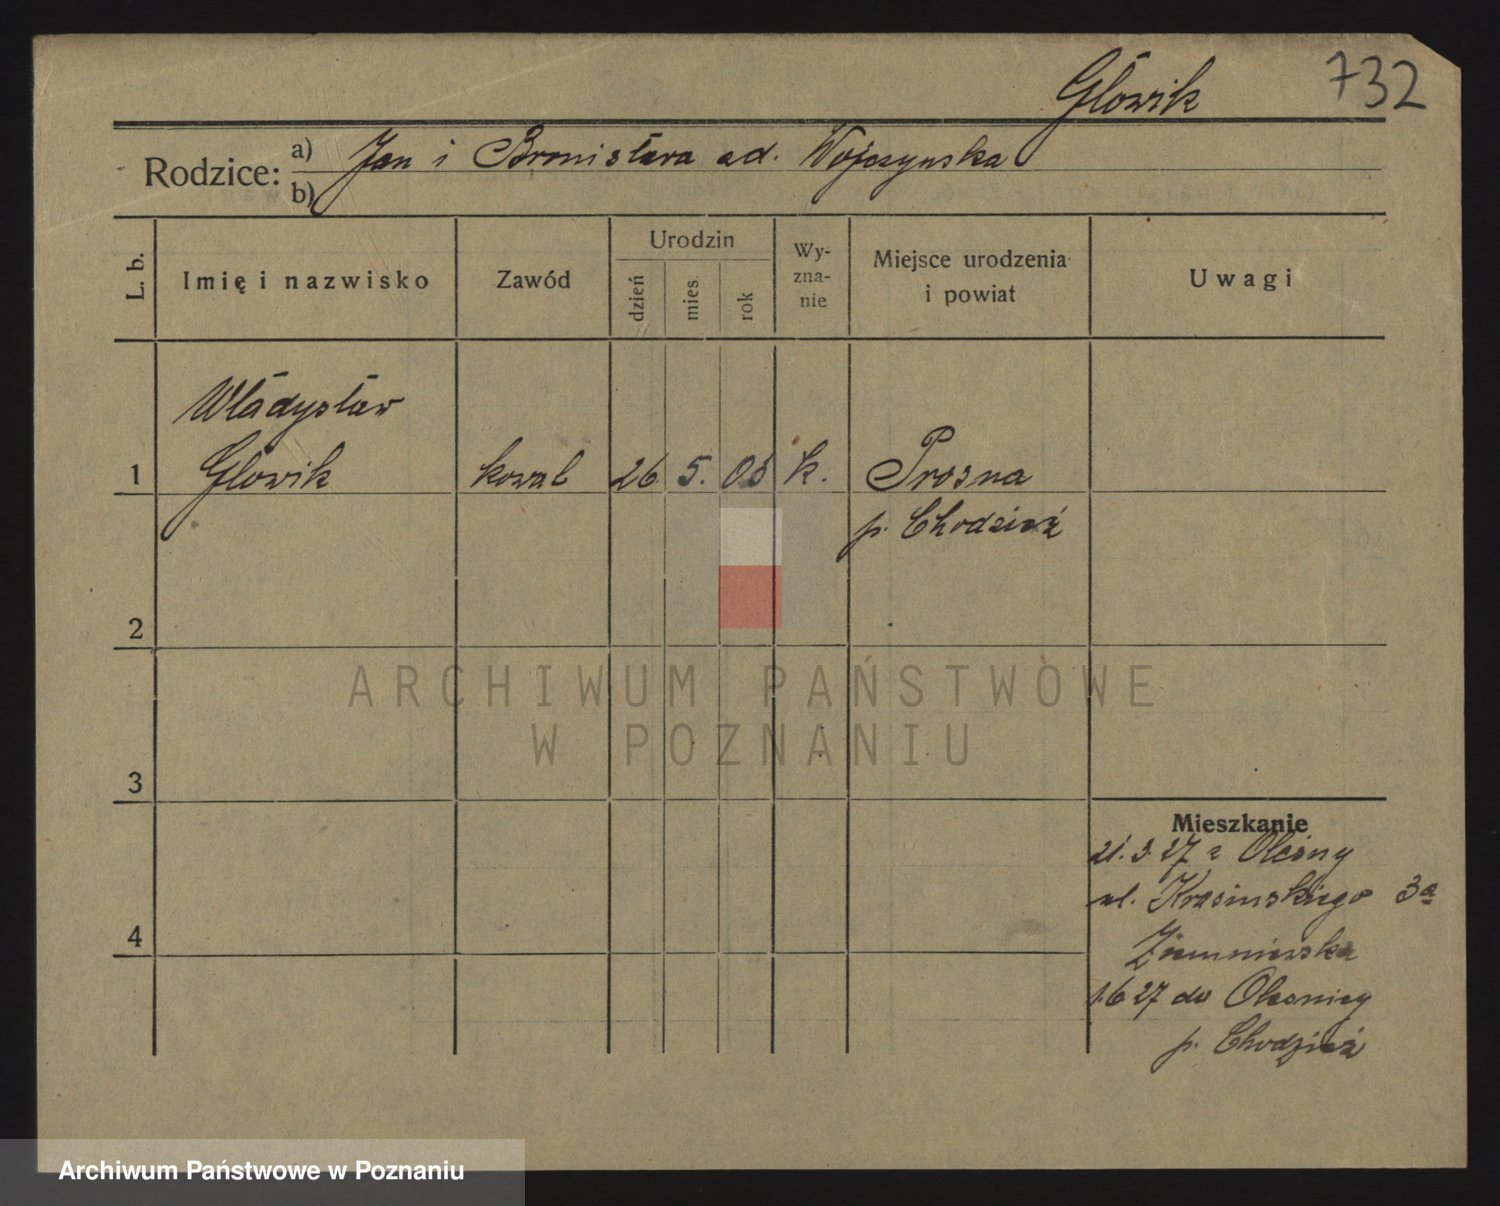 Głowik 732
Rodzice: a) Jan i Bronisława ad. Wojczynska
b)
L. b. Imię i nazwisko Zawód Urodzin dzień mies. rok Wyznanie Miejsce urodzenia i powiat Uwagi
Władysław
1 Głowik kowal 26 5. 05 k. Prosna
p. Chodzież
2
ARCHIWUM PAŃSTWOWE
W POZNANIU
3
Mieszkanie
21. 3. 27 z
ul. Krasinskiego 3a
4
1.6 27 do Olesnicy
p. Chodzież
Archiwum Państwowe w Poznaniu